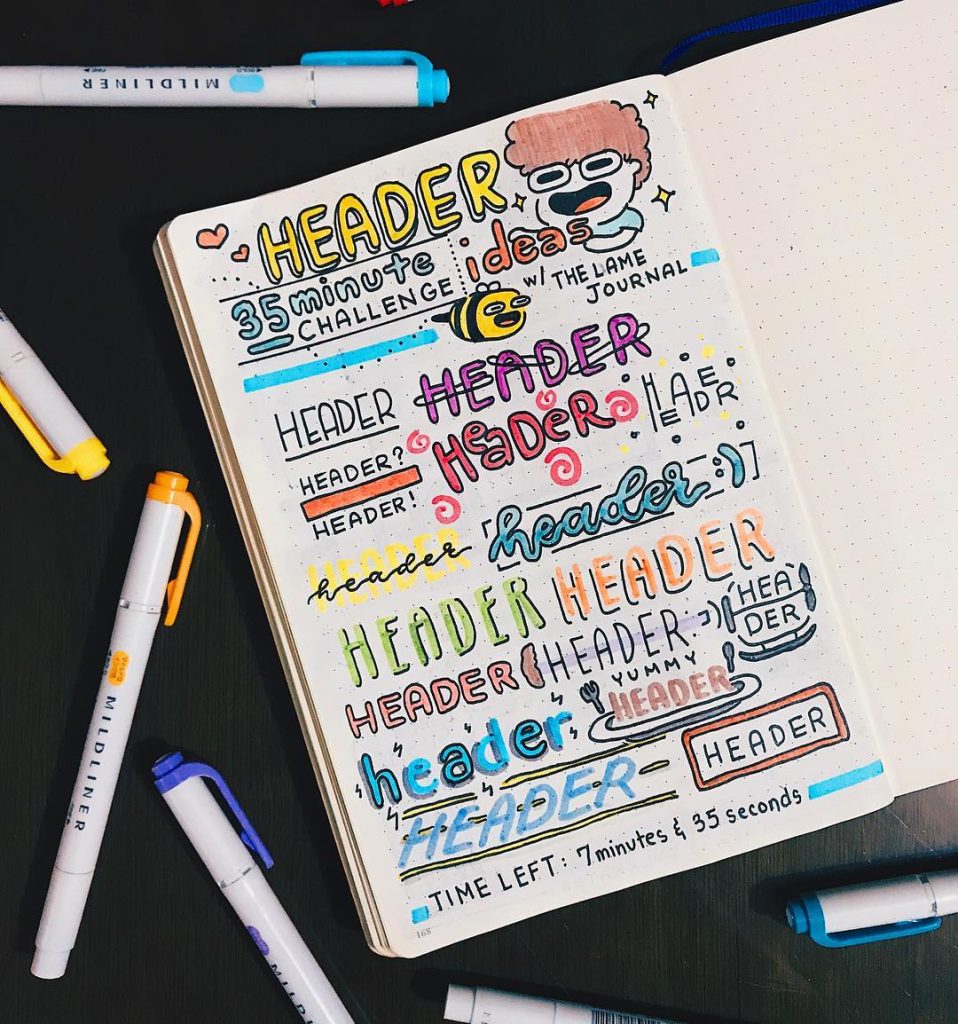 MILDLINER
HEADER
ideas
35 minute
CHALLENGE
w/ THE LAME
JOURNAL
HEADER
HEADER
HEADER
HEADER?
HEADER!
HEADER
HEADER
header
header :)
HEADER
HEADER
HEADER
HEADER
HEA
DER
YUMMY
HEADER
header
HEADER
HEADER
TIME LEFT: 7 minutes & 35 seconds
168
MILDLINER